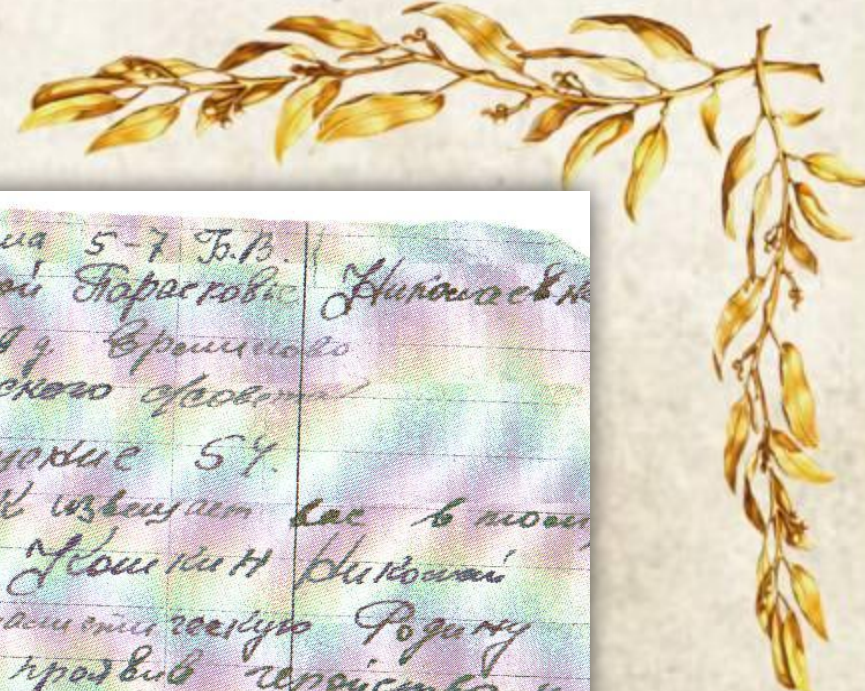 5-7 Б.В.
ой Парасковие Николаевн
в д. Еремино
ского с/совета
57.
К извещает вас в том,
Кошкин Николай
социалистическую Родину
проявив геройство и